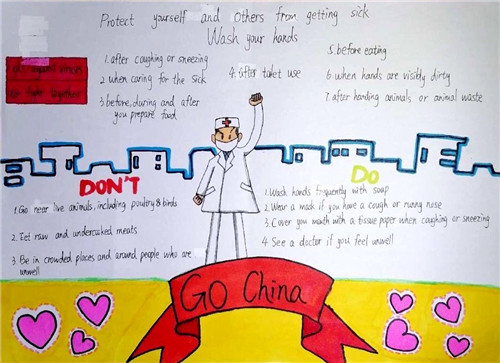 Protect yourself and others from getting sick
Wash your hands
against virus
fight together
1. after coughing or sneezing
2. when caring for the sick
3. before, during and after
you prepare food
4. after toilet use
5. before eating
6. when hands are visibly dirty
7. after handing animals or animal waste
DON'T
1. Go near live animals, including poutery & birds
2. Eet raw and undercooked meats
3. Be in crowded places and around people who are
unwell
Do
1. Wash hands frequently with soap
2. Wear a mask if you have a cough or runny nose
3. Cover you mouth with a tissue paper when caughing or sneezing
4. See a doctor if you feel unwell
GO China